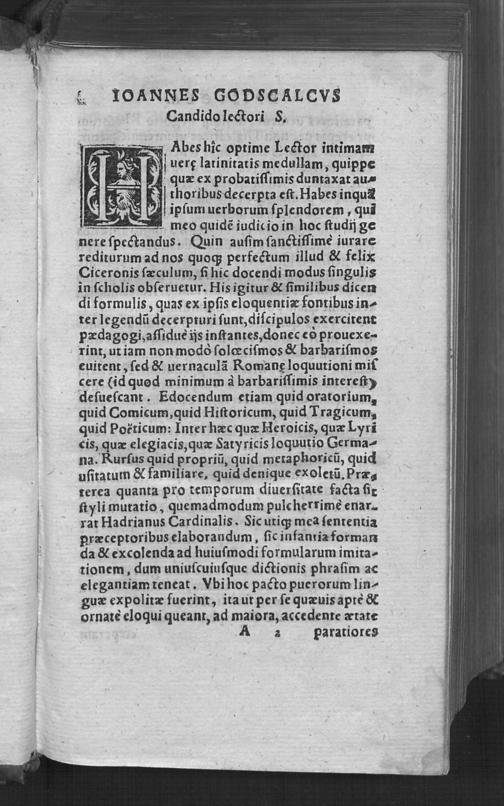 IOANNES GODSCALCVS
Candido lectori S.
HAbes hîc optime Lector intimam
uerę latinitatis medullam, quippe
quæ ex probatissimis duntaxat au-
thoribus decerpta est. Habes inquã
ipsum uerborum splendorem, qui
meo quidẽ iudicio in hoc studij ge
nere spectandus. Quin ausim sanctissimè iurare
rediturum ad nos quoqꝫ perfectum illud & felix
Ciceronis sæculum, si hic docendi modus singulis
in scholis obseruetur. His igitur & similibus dicen
di formulis, quas ex ipsis eloquentiæ fontibus in-
ter legendũ decerpturi sunt, discipulos exercitent
pædagogi, assiduè ijs instantes, donec eò prouexe-
rint, ut iam non modò solœcismos & barbarismos
euitent, sed & uernaculã Romanę loquutioni mis
cere (id quod minimum à barbarissimis interest)
desuescant. Edocendum etiam quid oratorium,
quid Comicum, quid Historicum, quid Tragicum,
quid Poëticum: Inter hæc quæ Heroicis, quæ Lyri
cis, quæ elegiacis, quæ Satyricis loquutio Germa-
na. Rursus quid propriũ, quid metaphoricũ, quid
usitatum & familiare, quid denique exoletũ. Præ-
terea quanta pro temporum diuersitate facta sit
styli mutatio, quemadmodum pulcherrimè enar-
rat Hadrianus Cardinalis. Sic utiqꝫ mea sententia
præceptoribus elaborandum, sic infantia forman
da & excolenda ad huiusmodi formularum imita-
tionem, dum uniuscuiusque dictionis phrasim ac
elegantiam teneat. Vbi hoc pacto puerorum lin-
guæ expolitæ fuerint, ita ut per se quæuis aptè &
ornatè eloqui queant, ad maiora, accedente ætate
A 2 paratiores